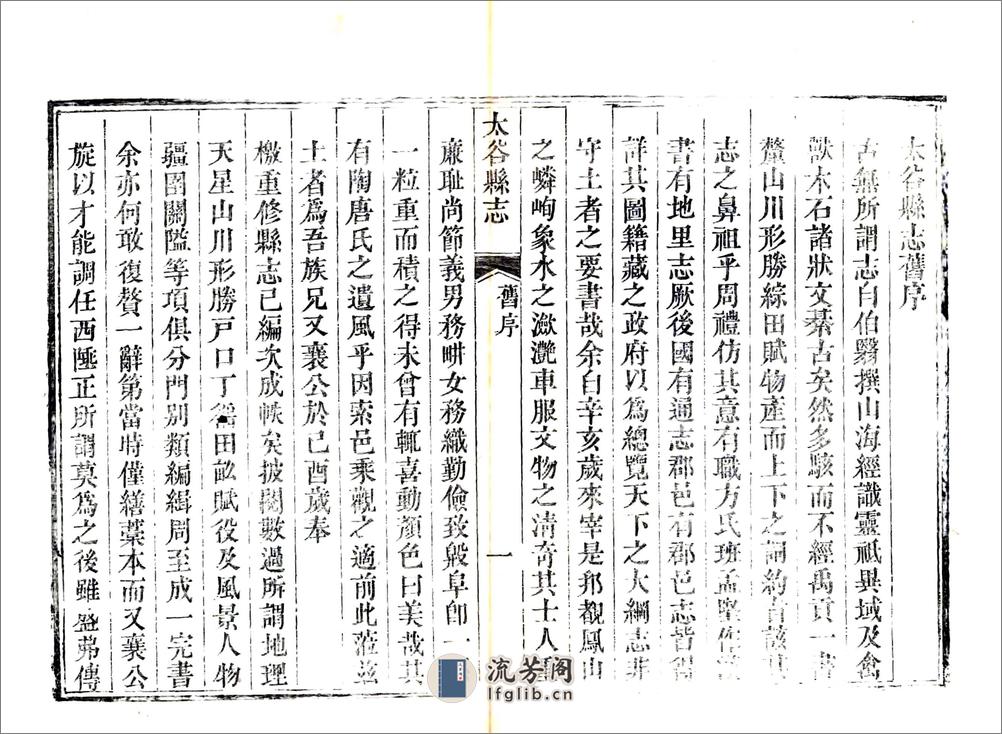 太谷縣志舊序
古無所謂志自伯翳撰山海經識靈祇異域及禽
獸木石諸狀文綦古矣然多駭而不經禹貢一書
釐山川形勝綜田賦物產而上下之詞約旨該其
志之鼻祖乎周禮仿其意有職方氏班孟堅作
書有地里志厥後國有通志郡邑有郡邑志皆得
詳其圖籍藏之政府以爲總覽天下之大綱志非
守土者之要書哉余自辛亥歲來宰是邦覩鳳山
之嶙峋象水之瀲灔車服文物之清奇其士人
太谷縣志
舊序
一
廉耻尚節義男務畊女務織勤儉致殷阜卽一
一粒重而積之得未曾有輒喜動顏色曰美哉其
有陶唐氏之遺風乎因索邑乘觀之適前此蒞茲
土者爲吾族兄又襄公於己酉歲奉
檄重修縣志已編次成帙矣披閱數過所謂地理
天星山川形勝戸口丁徭田畝賦役及風景人物
疆圉關隘等項俱分門別類編緝周至成一完書
余亦何敢復贅一辭第當時僅繕藁本而又襄公
旋以才能調任西陲正所謂莫爲之後雖盛弗傳
流芳阁
lfglib.cn